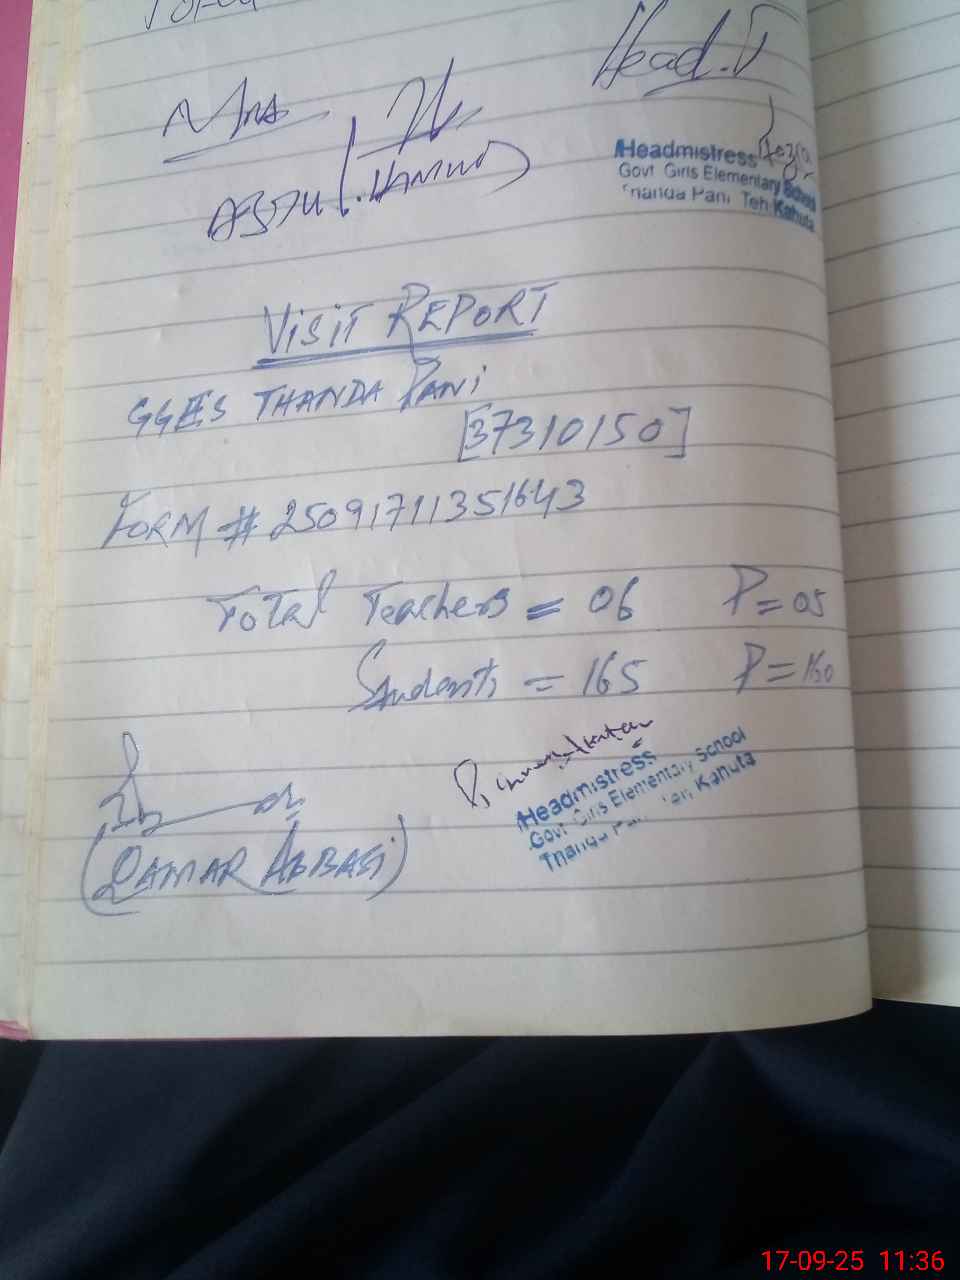 Head.T
ABDUL HAMID
Headmistress
Govt Girls Elementary School
Thanda Pani Teh Kahuta
VISIT REPORT
GGES THANDA PANI
[37310150]
FORM # 25091711351643
Total Teachers = 06 P = 05
Students = 165 P = 160
Headmistress
Govt Girls Elementary School
Thanda Pani Teh Kahuta
(QAMAR ABBASI)
17-09-25 11:36